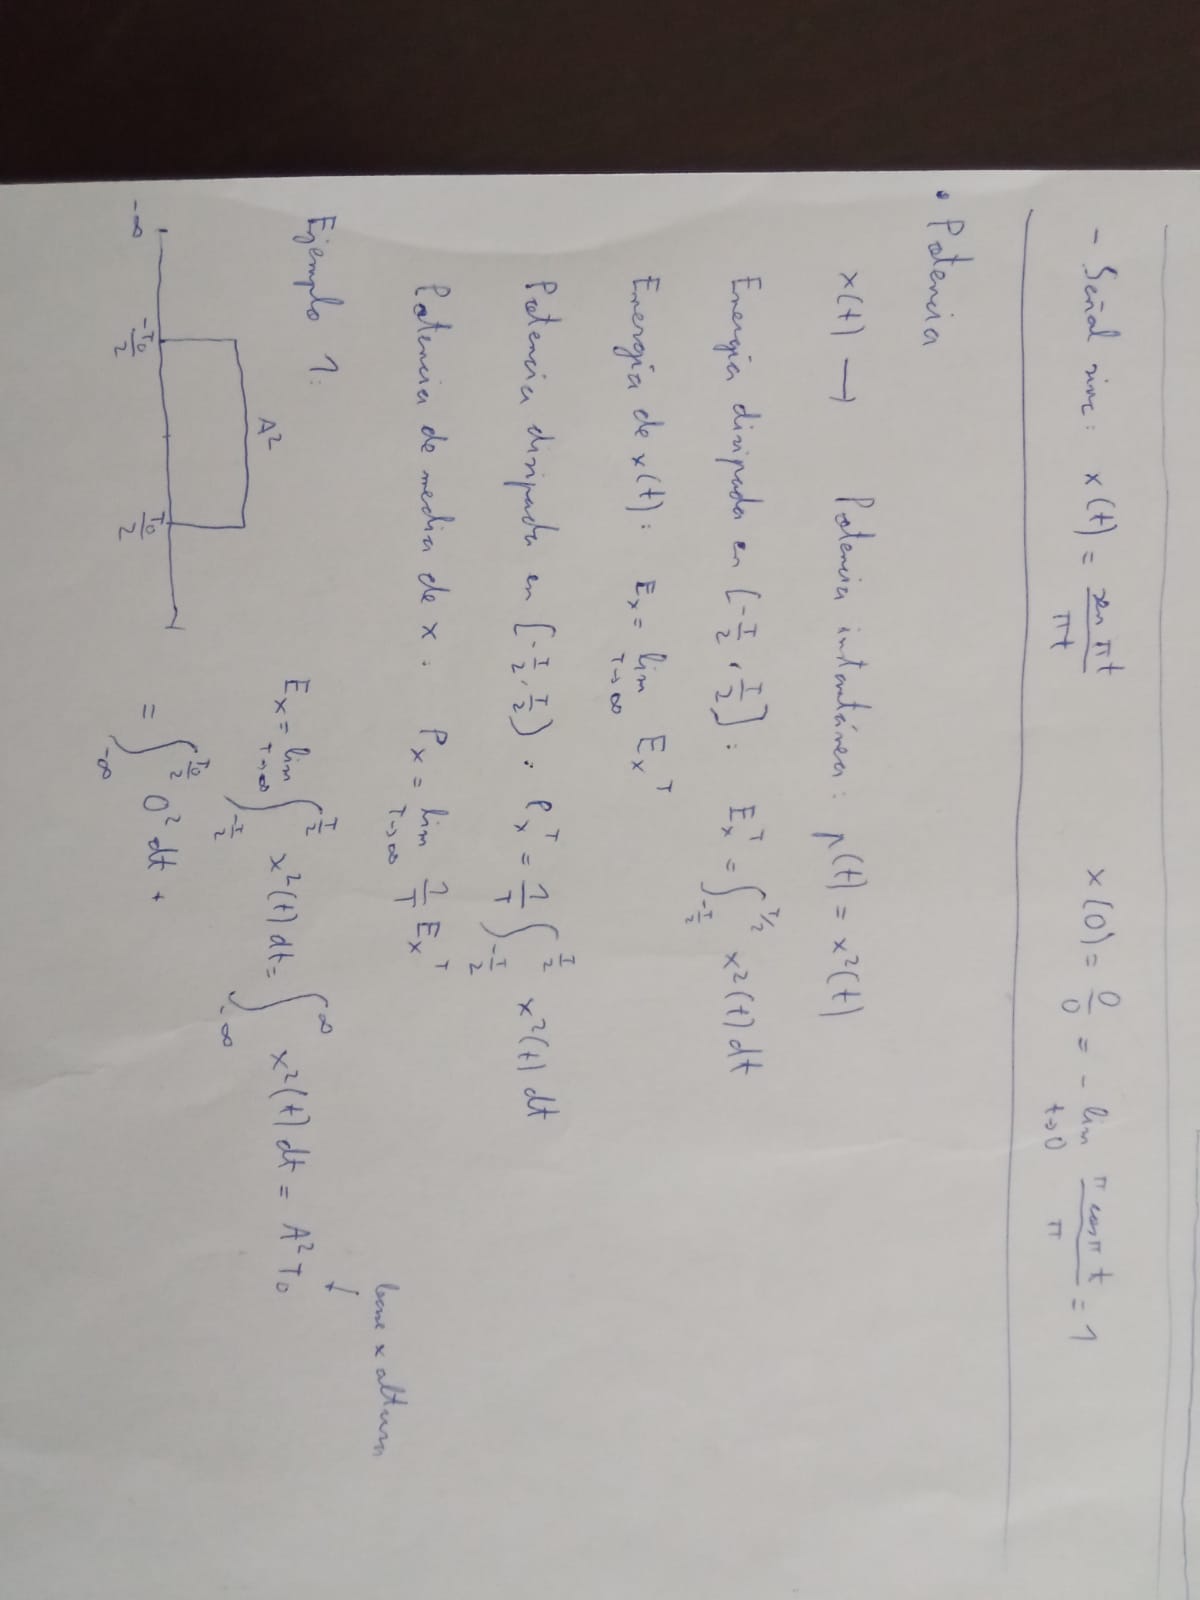 - Señal sinc: x(t) = sen πt / πt    x(0) = 0/0 = - lim t→0 π cos π t / π = 1
• Potencia
x(t) → Potencia instantánea: p(t) = x²(t)
Energía disipada en [-T/2, T/2]: E_x^T = ∫_{-T/2}^{T/2} x²(t) dt
Energía de x(t): E_x = lim T→∞ E_x^T
Potencia disipada en [-T/2, T/2): P_x^T = 1/T ∫_{-T/2}^{T/2} x²(t) dt
Potencia de media de x: P_x = lim T→∞ 1/T E_x^T
base x altura
↓
Ejemplo 1:
E_x = lim T→∞ ∫_{-T/2}^{T/2} x²(t) dt = ∫_{-∞}^{∞} x²(t) dt = A² T₀
A²
= ∫_{-∞}^{T₀/2} 0² dt +
-∞ -T₀/2 T₀/2